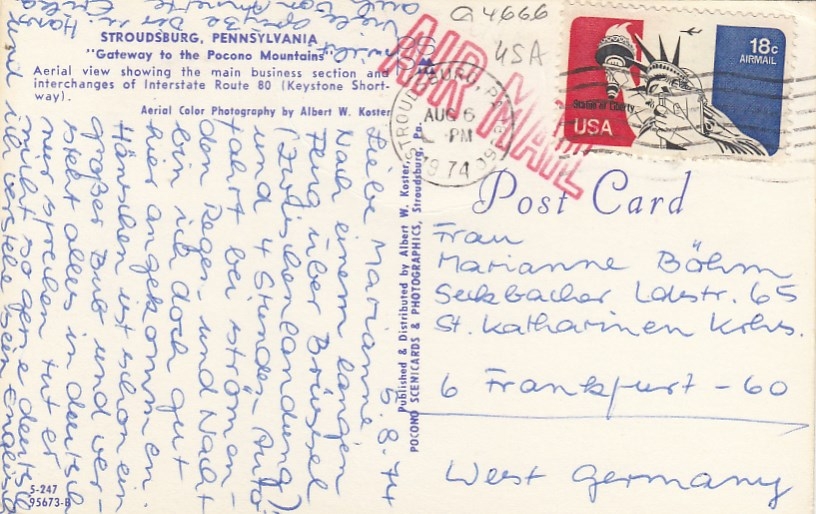 STROUDSBURG, PENNSYLVANIA
"Gateway to the Pocono Mountains"
Aerial view showing the main business section and
interchanges of Interstate Route 80 (Keystone Short-
way).
Aerial Color Photography by Albert W. Koster
G4666
USA
AIR MAIL
STROUDSBURG, PA
AUG 6
PM
1974
18c
AIRMAIL
Statue of Liberty
USA
Post Card
Frau
Marianne Böhm
Seckbacher Ldstr. 65
St. Katharinen Krhs.
6 Frankfurt-60
West Germany
Published & Distributed by Albert W. Koster,
POCONO SCENICARDS & PHOTOGRAPHICS, Stroudsburg, Pa.
5.8.74
Liebe Marianne
Nach einem langen
Flug über Brüssel
(Zwischenlandung)
und 4 Stunden-Auto
fahrt bei strömen-
den Regen, und Nacht
bin ich doch gut
hier angekommen.
Hänschen ist schon ein
großer Bub und ver-
steht alles in deutsch
nur sprechen tut er
nicht so gerne deutsch
und ich verstehe sein Englisch
5-247
95673-B